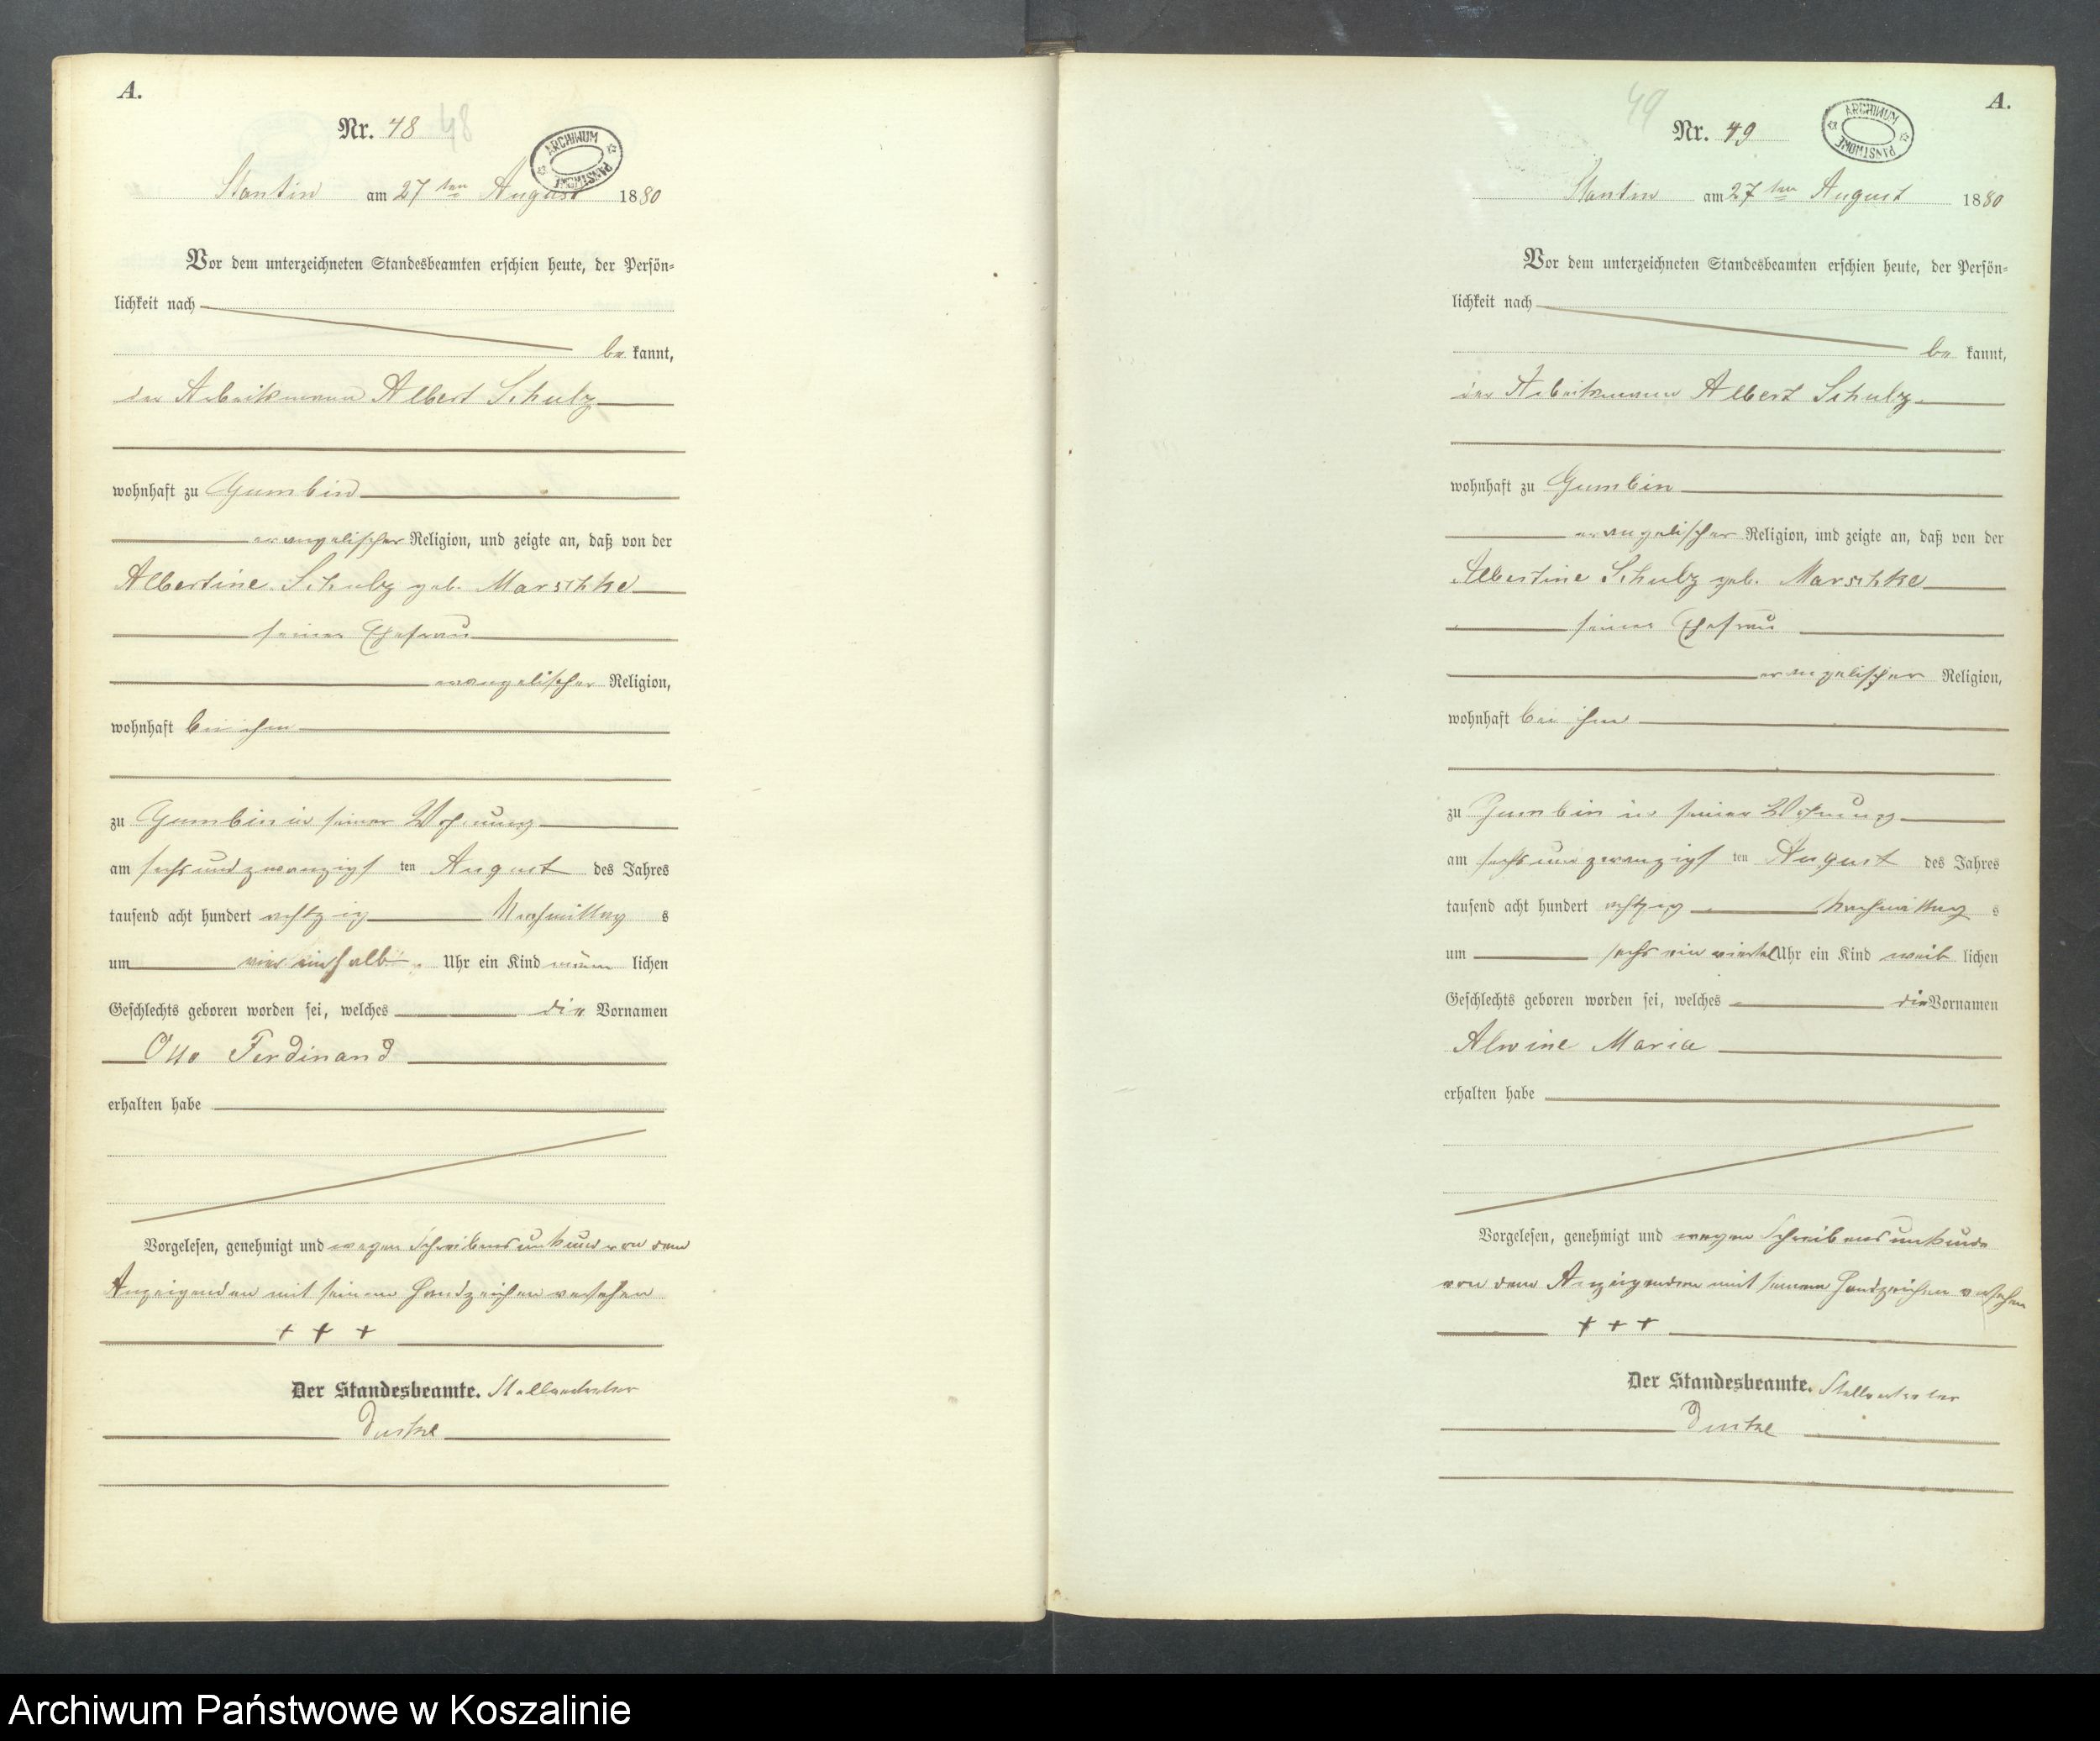 A.
Nr. 48 48
ARCHIWUM PAŃSTWOWE
Stantin am 27 ten August 1880
Vor dem unterzeichneten Standesbeamten erschien heute, der Persön-
lichkeit nach
be kannt,
der Arbeitsmann Albert Schulz
wohnhaft zu Gumbin
evangelischer Religion, und zeigte an, daß von der
Albertine Schulz geb. Marschke
seiner Ehefrau
evangelischer Religion,
wohnhaft bei ihm
zu Gumbin in seiner Wohnung
am sechsundzwanzigsten August des Jahres
tausend acht hundert achtzig Nachmittag s
um vier einhalb Uhr ein Kind männ lichen
Geschlechts geboren worden sei, welches die Vornamen
Otto Ferdinand
erhalten habe
Vorgelesen, genehmigt und wegen Schreibensunkund von dem
Anzeigenden mit seinem Handzeichen versehen
+ + +
Der Standesbeamte. Stellvertreter
A.
49
Nr. 49
ARCHIWUM PAŃSTWOWE
Stantin am 27 ten August 1880
Vor dem unterzeichneten Standesbeamten erschien heute, der Persön-
lichkeit nach
be kannt,
der Arbeitsmann Albert Schulz
wohnhaft zu Gumbin
evangelischer Religion, und zeigte an, daß von der
Albertine Schulz geb. Marschke
seiner Ehefrau
evangelischer Religion,
wohnhaft bei ihm
zu Gumbin in seiner Wohnung
am sechsundzwanzigsten August des Jahres
tausend acht hundert achtzig Nachmittag s
um sechs ein viertel Uhr ein Kind weib lichen
Geschlechts geboren worden sei, welches die Vornamen
Alwine Maria
erhalten habe
Vorgelesen, genehmigt und wegen Schreibensunkunde
von dem Anzeigenden mit seinem Handzeichen versehen
+ + +
Der Standesbeamte. Stellvertreter
Archiwum Państwowe w Koszalinie